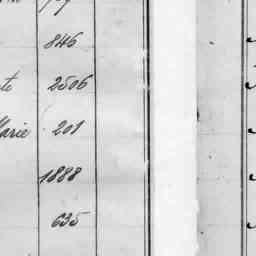 846
te 2506
Marie 201
1888
635